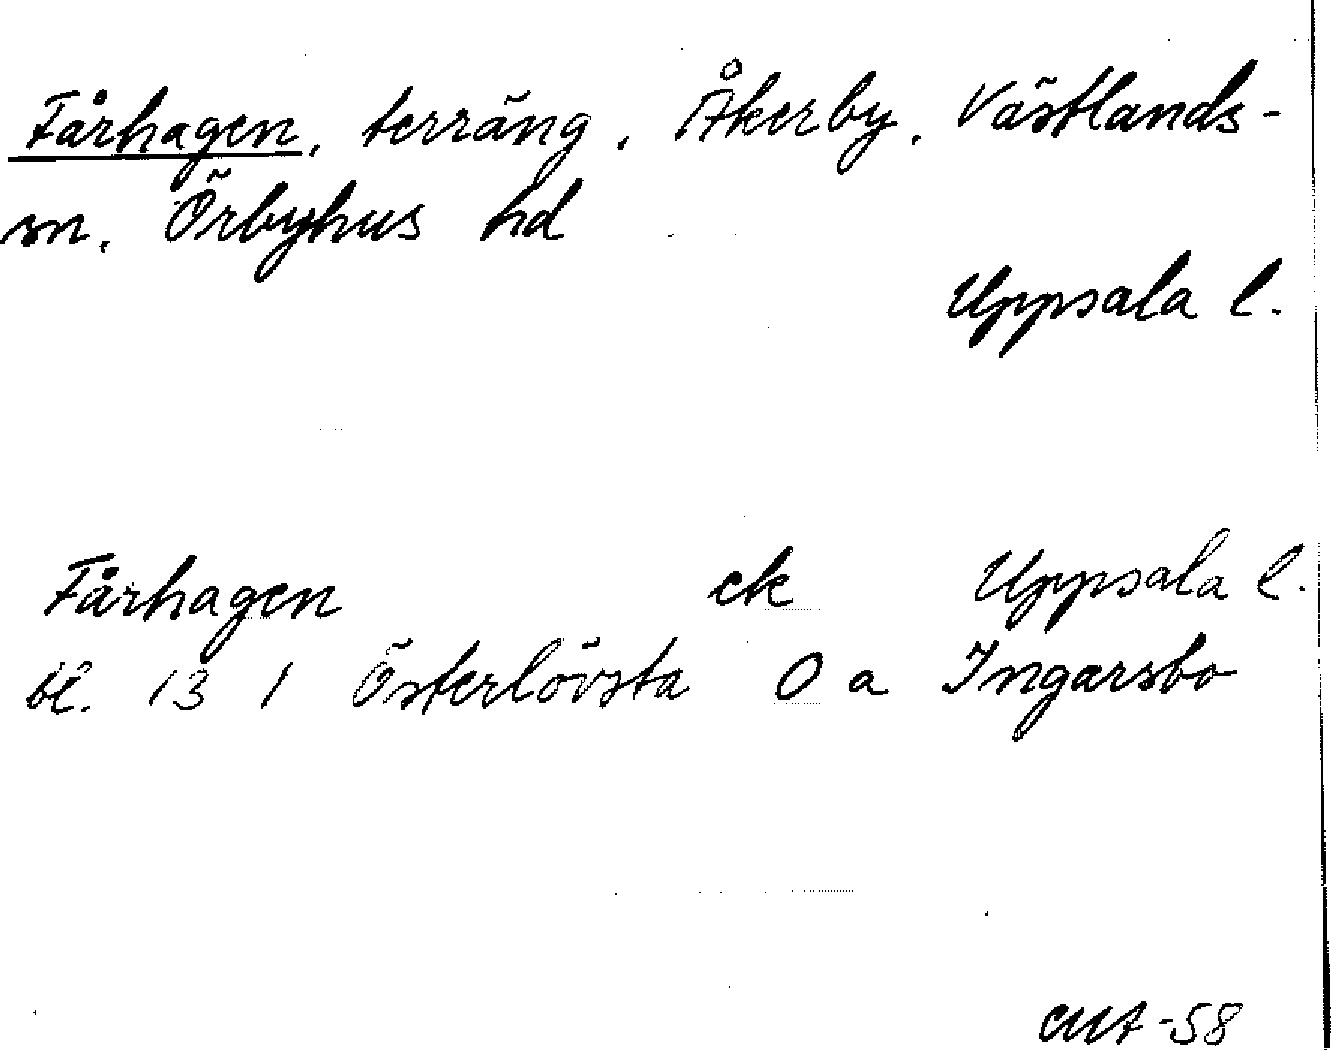 Fårhagen, terräng, Åkerby, Västlands-
sn, Örbyhus hd
Uppsala l.
Fårhagen ek Uppsala l.
bl. 13 1 Österlövsta O a Ingarsbo
-58